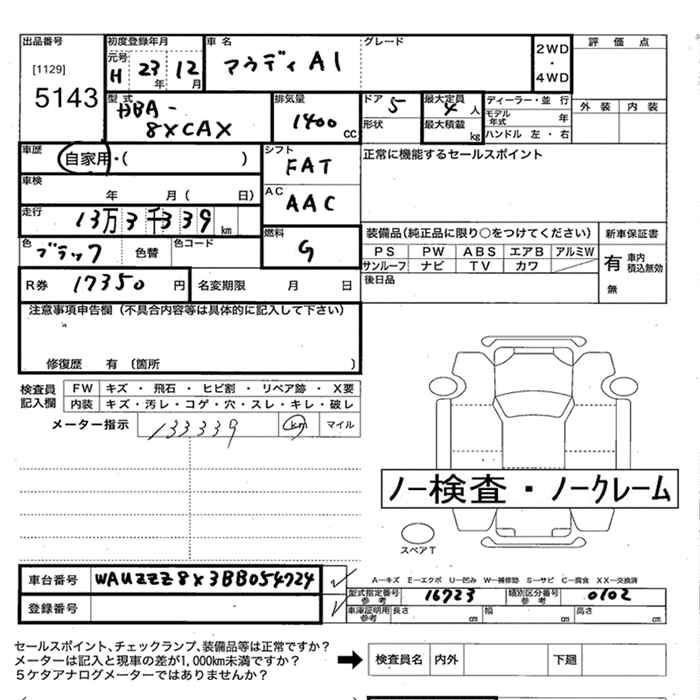 出品番号 初度登録年月 車名 グレード 評価点
元号 H 23年 12月 アウディ A1 2WD・4WD
[1129]
5143
型式 DBA-8XCAX 排気量 1400cc ドア 5 最大定員 4人 ディーラー・並行 外装 内装
形状 最大積載 kg モデル年式 年
ハンドル 左・右
車歴 自家用・( ) シフト FAT 正常に機能するセールスポイント
車検 年 月( 日) AC AAC
走行 13万3千339km
色 ブラック 色替 色コード 燃料 G 装備品(純正品に限り○をつけてください) 新車保証書
PS PW ABS エアB アルミW 有 車内積込無効
サンルーフ ナビ TV カワ
R券 17350円 名変期限 月 日 後日品 無
注意事項申告欄(不具合内容等は具体的に記入して下さい)
修復歴 有(箇所 )
検査員記入欄 FW キズ・飛石・ヒビ割・リペア跡・X要
内装 キズ・汚レ・コゲ・穴・スレ・キレ・破レ
メーター指示 133339 km マイル
ノー検査・ノークレーム
スペアT
車台番号 WAUZZZ8X3BB054724
A−キズ E−エクボ U−凹み W−補修跡 S−サビ C−腐食 XX−交換済
登録番号 型式指定番号 参考 16723 類別区分番号 参考 0102
車庫証明用 参考 長さ cm 幅 cm 高さ cm
セールスポイント、チェックランプ、装備品等は正常ですか?
メーターは記入と現車の差が1,000km未満ですか?
5ケタアナログメーターではありませんか?
検査員名 内外 下廻